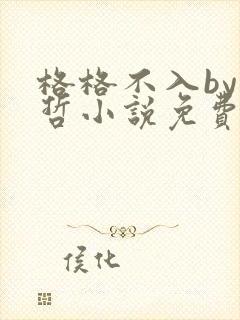 格格不入by
哲小說免費
侯化